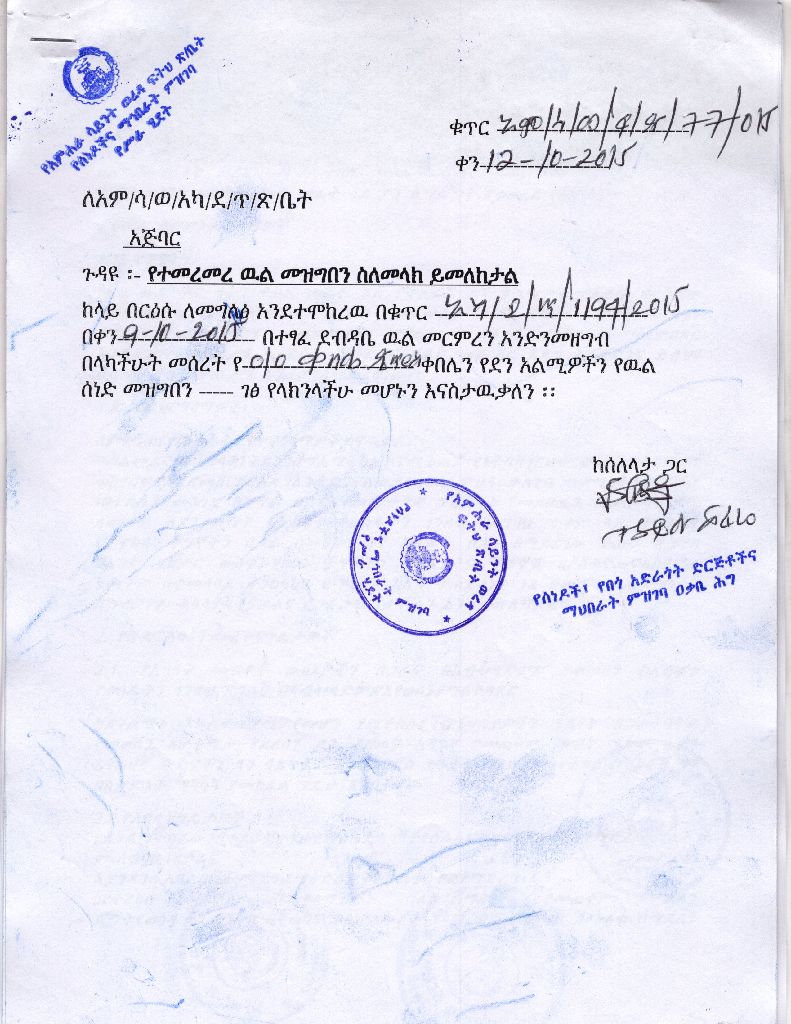 የአምሐራ ሳይንት ወረዳ ፍትህ ጽ/ቤት
የሰነዶችና ማኅበራት ምዝገባ
የሥራ ሂደት
ቁጥር 77/015
ቀን 12-10-2015
ለአም/ሳ/ወ/አካ/ደ/ጥ/ጽ/ቤት
አጅባር
ጉዳዩ ፡- የተመረመረ ዉል መዝግበን ስለመላክ ይመለከታል
ከላይ በርዕሱ ለመግለፅ እንደተሞከረዉ በቁጥር 1194/2015
በቀን 9-10-2015 በተፃፈ ደብዳቤ ዉል መርምረን እንድንመዘግብ
በላካችሁት መሰረት የ 010 ቀበሌ ቀበሌን የደን አልሚዎችን የዉል
ሰነድ መዝግበን ----- ገፅ የላክንላችሁ መሆኑን እናስታዉቃለን ፡፡
ከሰለላታ ጋር
የአምሐራ ሳይንት ወረዳ
ፍትህ ጽ/ቤት
የሰነዶች፣ የበጎ አድራጎት ድርጅቶችና
ማህበራት ምዝገባ ዐቃቤ ሕግ